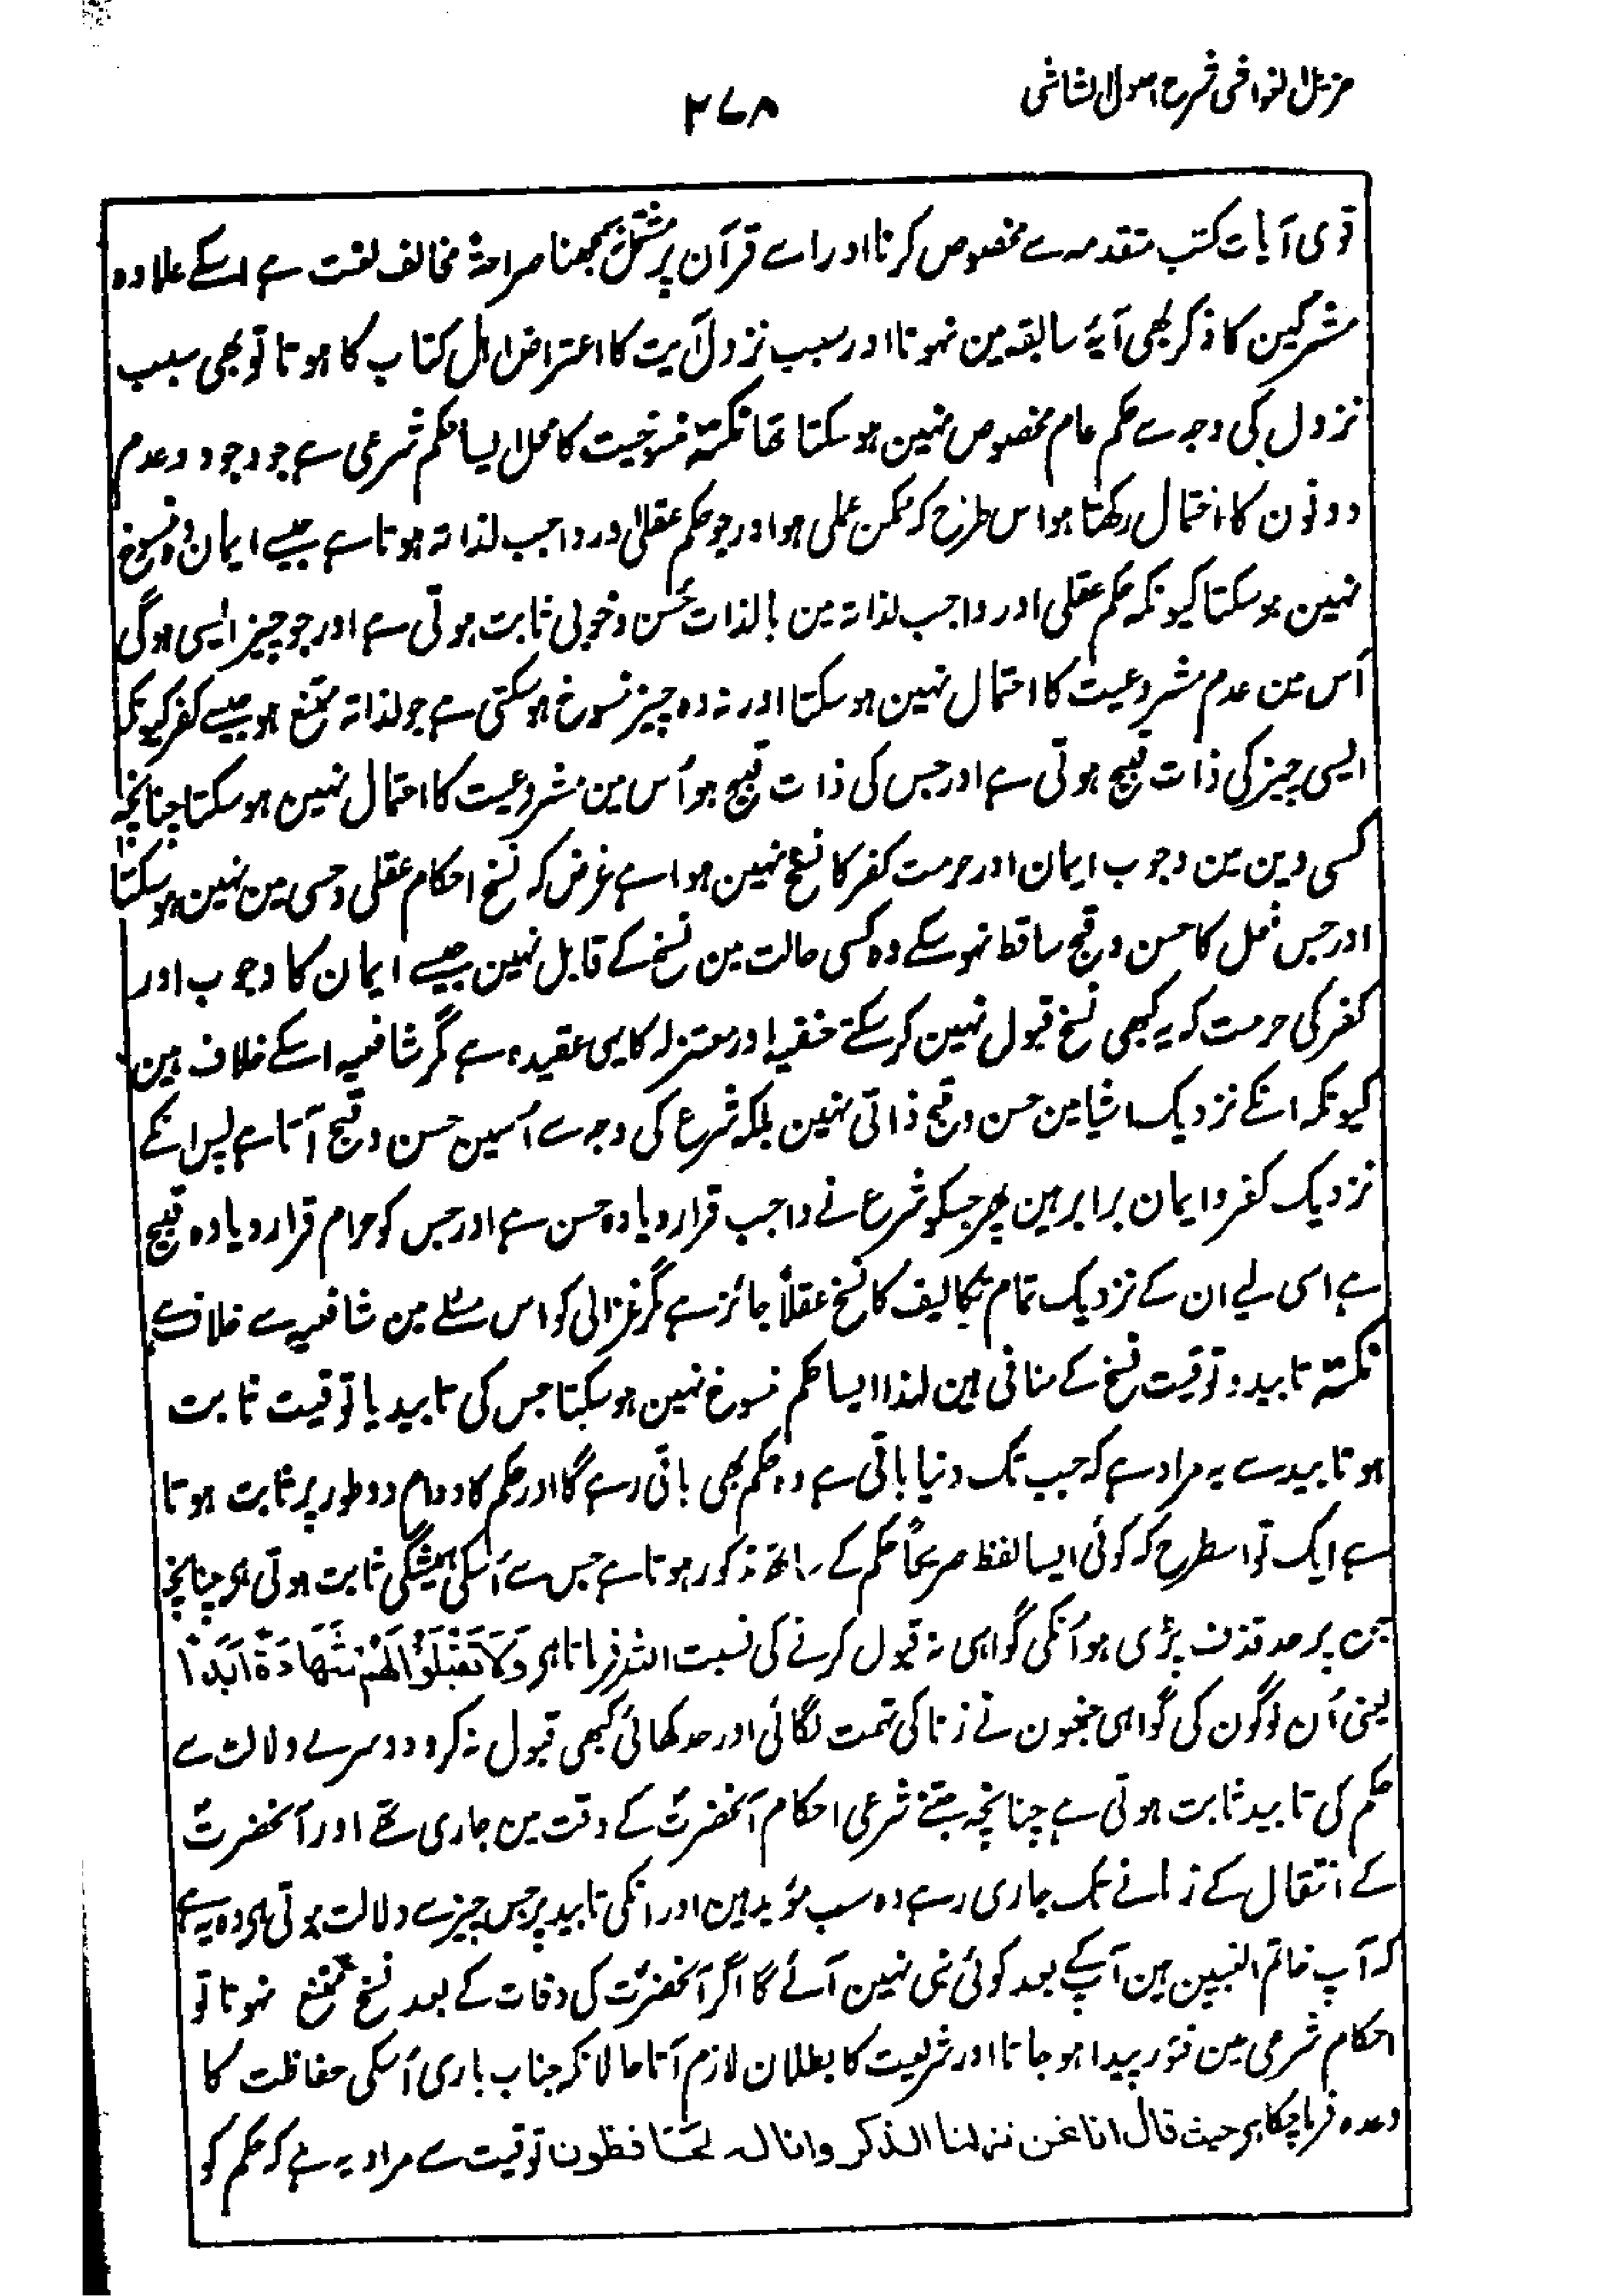 مزیل الغواشی شرح اصول الشاشی
۲۷۸
تو می آیات کتب متقدمہ سے مخصوص کرنا اور اسے قرآن پر مشتمل نہ سمجھنا صراحۃً مخالف لغت ہے اسکے علاوہ
مشرکین کا ذکر بھی آیۂ سابقہ مین نہوتا اور سبب نزول آیت کا اعتراض اہل کتاب کا ہوتا تو بھی سبب
نزول کی وجہ سے حکم عام مخصوص نہین ہو سکتا تھا نکتہ منسوخیت کا محل ایسا حکم شرعی ہے جو وجود و عدم
دونون کا احتمال رکھتا ہو اس طرح کہ ممکن عملی ہو اور جو حکم عقلی اور واجب لذاتہ ہوتا ہے جیسے ایمان وہ منسوخ
نہین ہو سکتا کیونکہ حکم عقلی اور واجب لذاتہ مین بالذات حُسن و خوبی ثابت ہوتی ہے اور جو چیز ایسی ہوگی
اُس مین عدم مشروعیت کا احتمال نہین ہو سکتا اور نہ وہ چیز منسوخ ہو سکتی ہے جو لذاتہ ممتنع ہو جیسے کفر کیونکہ
ایسی چیز کی ذات قبیح ہوتی ہے اور جس کی ذات قبیح ہو اُس مین مشروعیت کا احتمال نہین ہو سکتا چنانچہ
کسی دین مین وجوب ایمان اور حرمت کفر کا نسخ نہین ہوا ہے غرض کہ نسخ احکام عقلی و حسی مین نہین ہو سکتا
اور جس فعل کا حسن و قبح ساقط نہو سکے وہ کسی حالت مین نسخ کے قابل نہین جیسے ایمان کا وجوب اور
کفر کی حرمت کہ یہ کبھی نسخ قبول نہین کر سکتے حنفیہ اور معتزلہ کا یہی عقیدہ ہے مگر شافعیہ اسکے خلاف ہین
کیونکہ انکے نزدیک اشیا مین حسن و قبح ذاتی نہین بلکہ شرع کی وجہ سے اُسمین حسن و قبح آتا ہے پس انکے
نزدیک کفر و ایمان برابر ہین پھر جسکو شرع نے واجب قرار دیا وہ حسن ہے اور جس کو حرام قرار دیا وہ قبیح
ہے اسی لیے ان کے نزدیک تمام تکالیف کا نسخ عقلاً جائز ہے مگر غزالی کو اس مسئلے مین شافعیہ سے خلاف ہے
نکتہ تابید و توقیت نسخ کے منافی ہین لہذا ایسا حکم منسوخ نہین ہو سکتا جس کی تابید یا توقیت ثابت
ہو تابید سے یہ مراد ہے کہ جب تک دنیا باقی ہے وہ حکم بھی باقی رہے گا اور حکم کا دوام دو طور پر ثابت ہوتا
ہے ایک تو اسطرح کہ کوئی ایسا لفظ صریحاً حکم کے ساتھ مذکور ہوتا ہے جس سے اُسکی ہمیشگی ثابت ہوتی ہی چنانچہ
جن پر حد قذف پڑی ہو اُنکی گواہی نہ قبول کرنے کی نسبت اللہ فرماتا ہی وَلَا تَقْبَلُوْا لَهُمْ شَهَادَةً اَبَدًا
یعنی اُن لوگون کی گواہی جنھون نے زنا کی تہمت لگائی اور حد کھائی کبھی قبول نہ کرو دوسرے دلالت سے
حکم کی تابید ثابت ہوتی ہے چنانچہ جتنے شرعی احکام آنحضرتؐ کے وقت مین جاری تھے اور آنحضرتؐ
کے انتقال کے زمانے تک جاری رہے وہ سب مؤبد ہین اور انکی تابید پر جس چیز سے دلالت ہوتی ہی وہ یہ ہے
کہ آپ خاتم النبیین ہین آپکے بعد کوئی نبی نہین آئے گا اگر آنحضرتؐ کی وفات کے بعد نسخ ممتنع نہوتا تو
احکام شرعی مین فتور پیدا ہو جاتا اور شریعت کا بطلان لازم آتا حالانکہ جناب باری اُسکی حفاظت کا
وعدہ فرما چکا ہی حیث قال انا نحن نزلنا الذکر وانا له لحافظون توقیت سے مراد یہ ہے کہ حکم کو